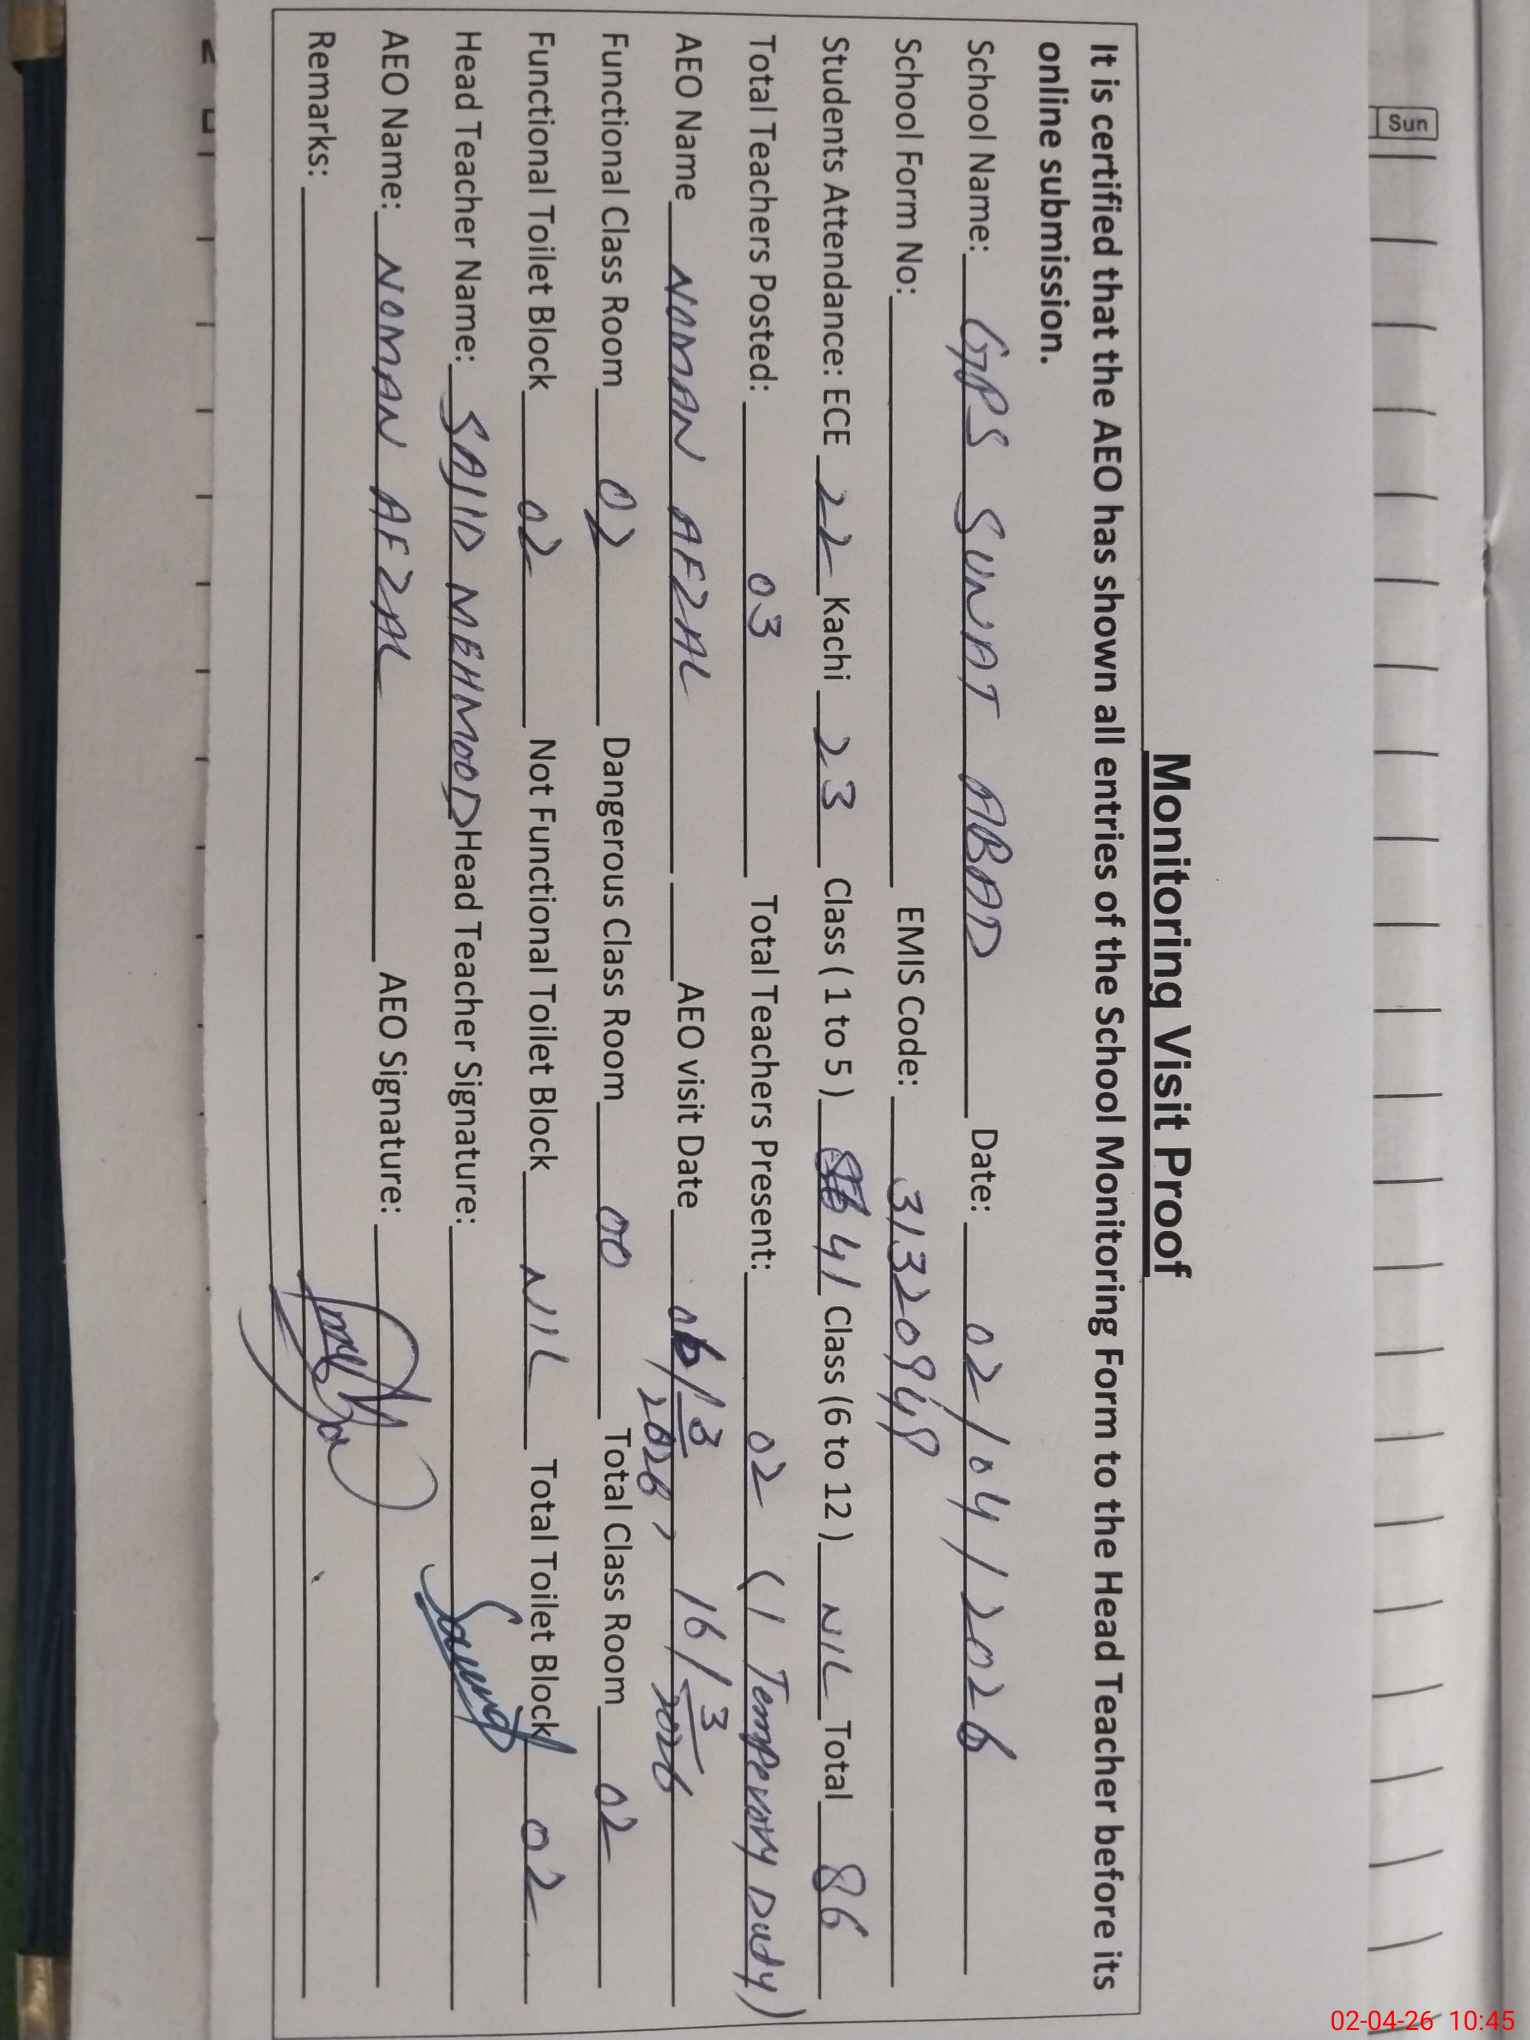 Sun
Monitoring Visit Proof
It is certified that the AEO has shown all entries of the School Monitoring Form to the Head Teacher before its
online submission.
School Name: GPS SUNAT ABAD Date: 02/04/2026
School Form No: EMIS Code: 31320948
Students Attendance: ECE 22 Kachi 23 Class ( 1 to 5 ) 41 Class (6 to 12 ) NIL Total 86
Total Teachers Posted: 03 Total Teachers Present: 02 (1 Temperory Duty)
AEO Name NOMAN AFZAL AEO visit Date 06/3/2026, 16/3/2026
Functional Class Room 02 Dangerous Class Room 00 Total Class Room 02
Functional Toilet Block 02 Not Functional Toilet Block NIL Total Toilet Block 02
Head Teacher Name: SAJID MEHMOOD Head Teacher Signature:
AEO Name: NOMAN AFZAL AEO Signature:
Remarks:
02-04-26 10:45